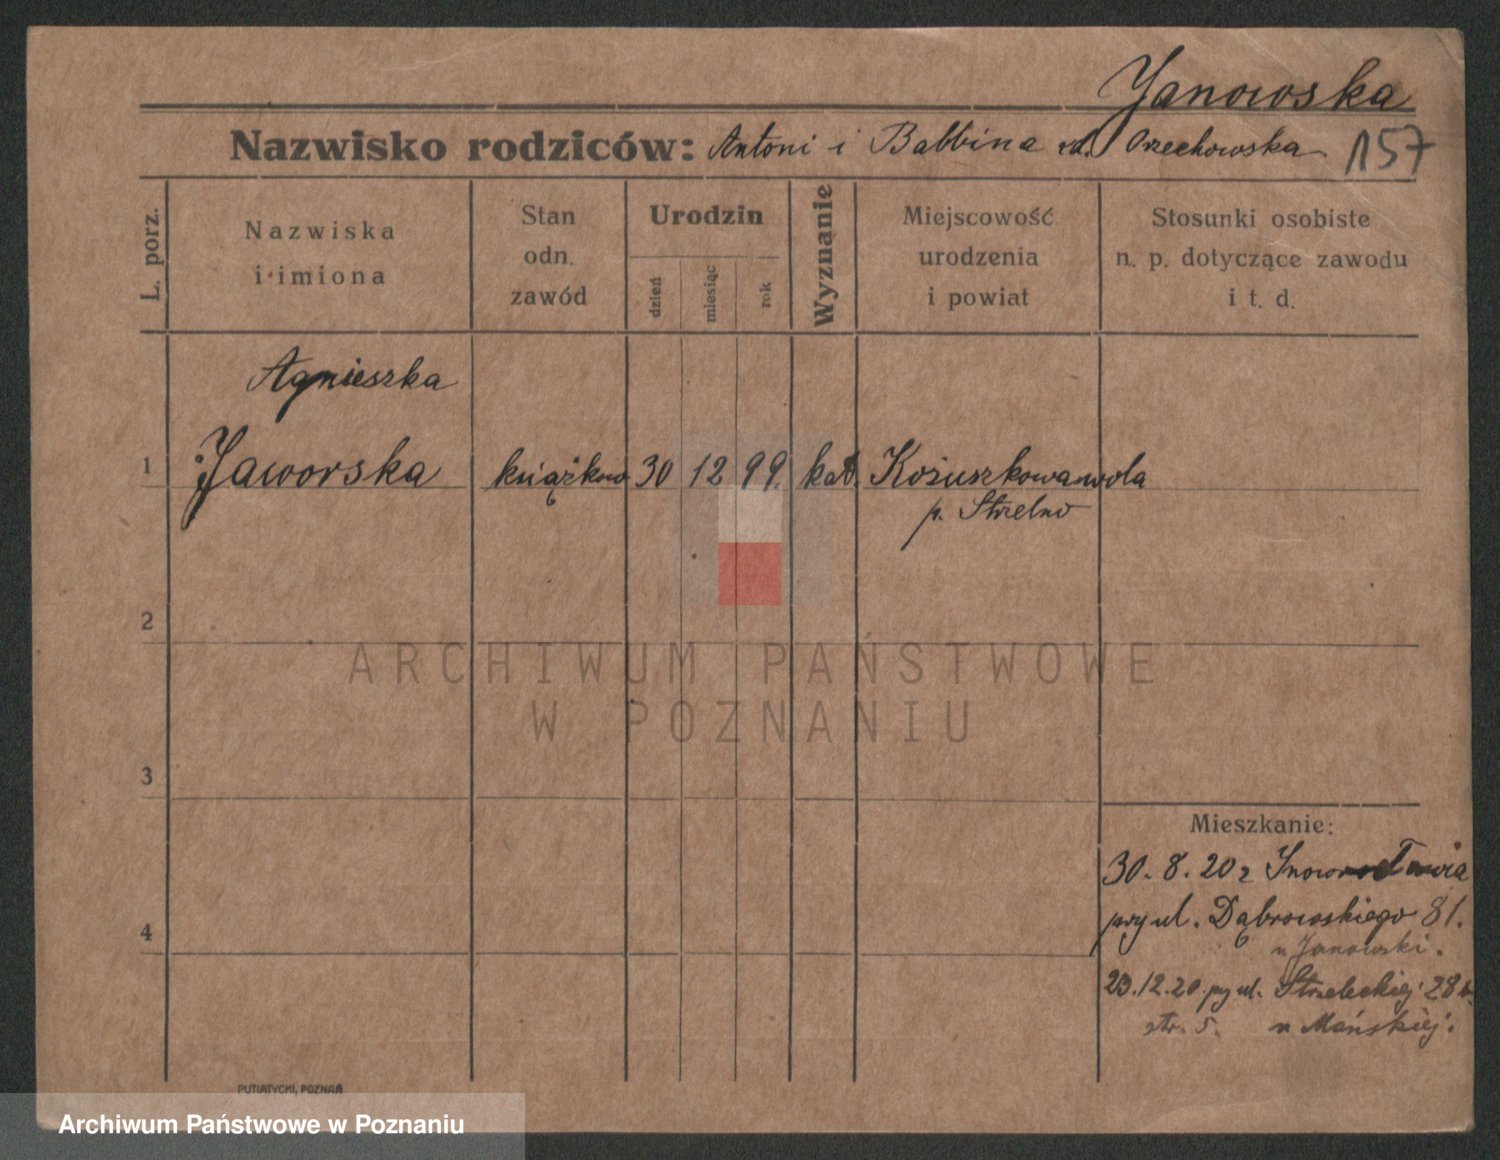 Janowska
Nazwisko rodziców: Antoni i Balbina rd. Orzechowska
157
L. porz.
Nazwiska
i imiona
Stan
odn.
zawód
Urodzin
dzień
miesiąc
rok
Wyznanie
Miejscowość
urodzenia
i powiat
Stosunki osobiste
n. p. dotyczące zawodu
i t. d.
Agnieszka
1 Jaworska książkow 30 12 99. kat. Kożuszkowawola
p. Strzelno
2
ARCHIWUM PAŃSTWOWE
W POZNANIU
3
Mieszkanie:
30.8.20 z Inowrocławia
przy ul. Dąbrowskiego 81.
4
u Janowski.
23.12.20 przy ul. Strzeleckiej 28
str. 5. u Mańskiej.
PUTIATYCKI, POZNAŃ
Archiwum Państwowe w Poznaniu